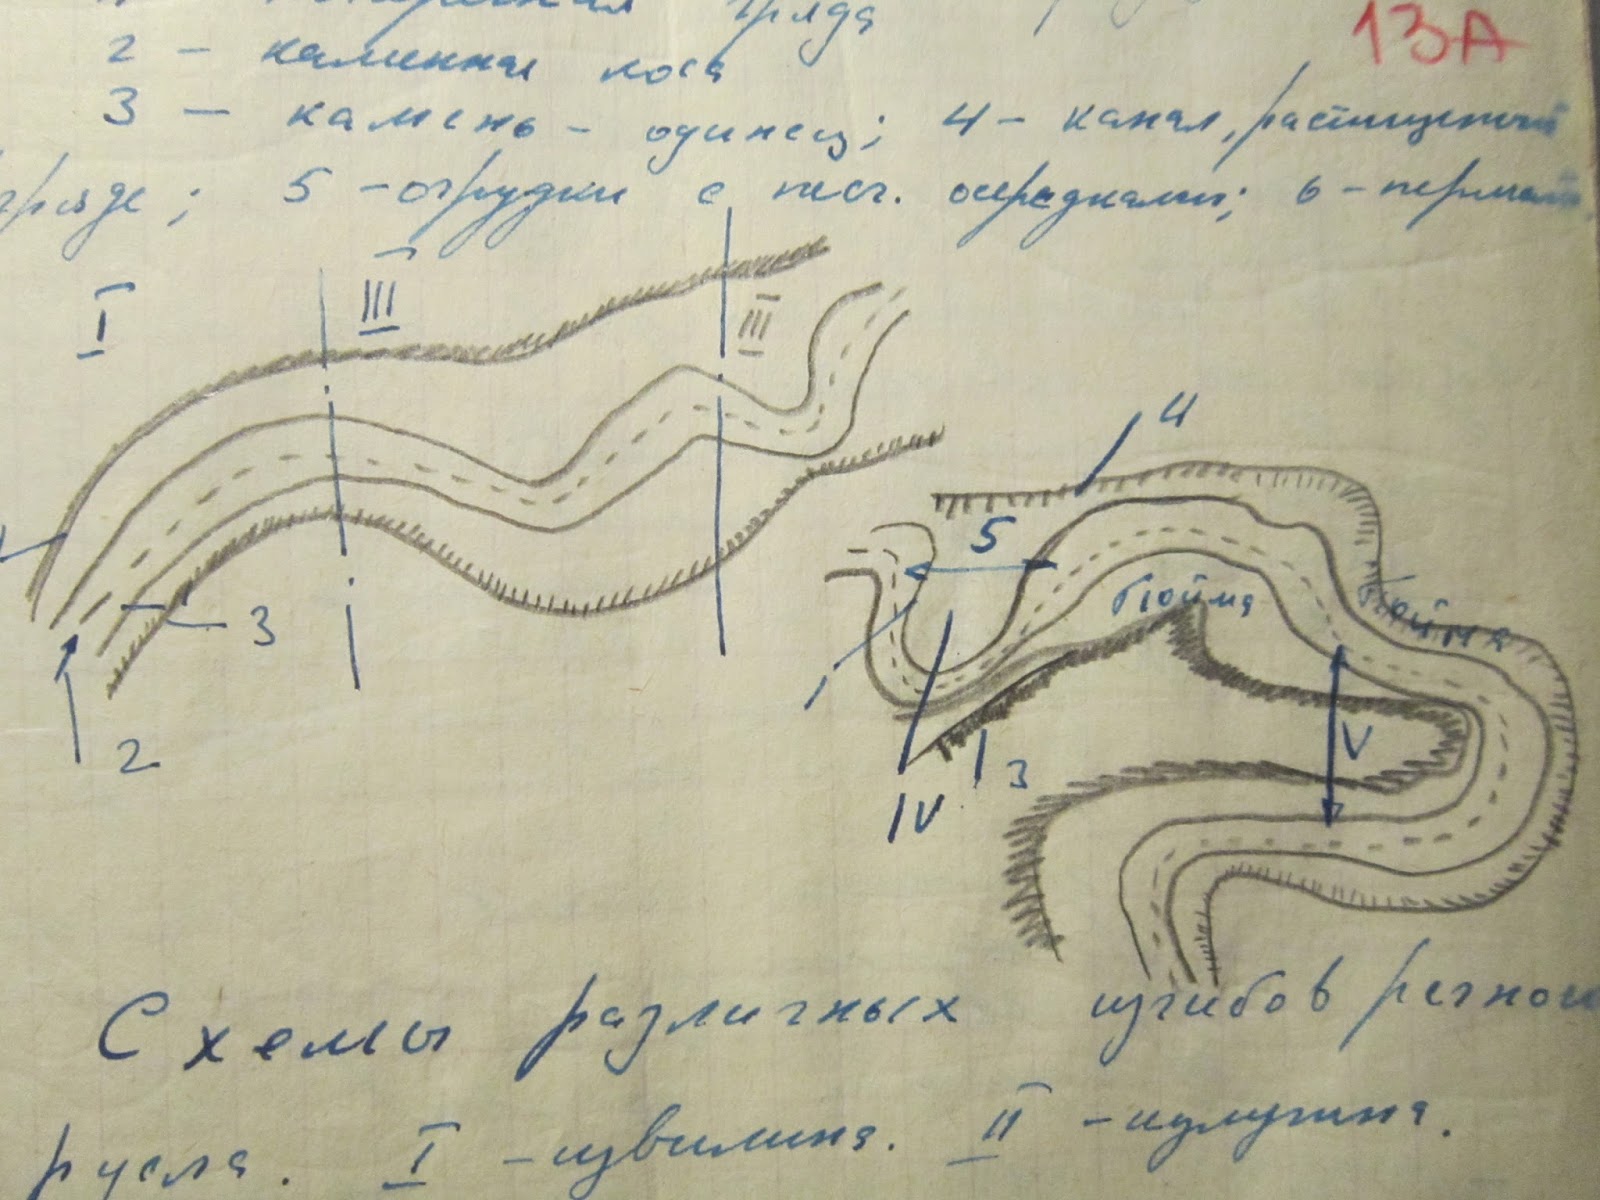 гряда
13А
2 - каменная коса
3 - камень - одинец; 4 - канал, расчищенный
гряде; 5 - огрудки с песч. осередками; 6 -
I
III
III
4
5
пойма
пойма
3
1
2
V
3
IV
Схемы различных изгибов речного
русла. I - извилина. II - излучина.